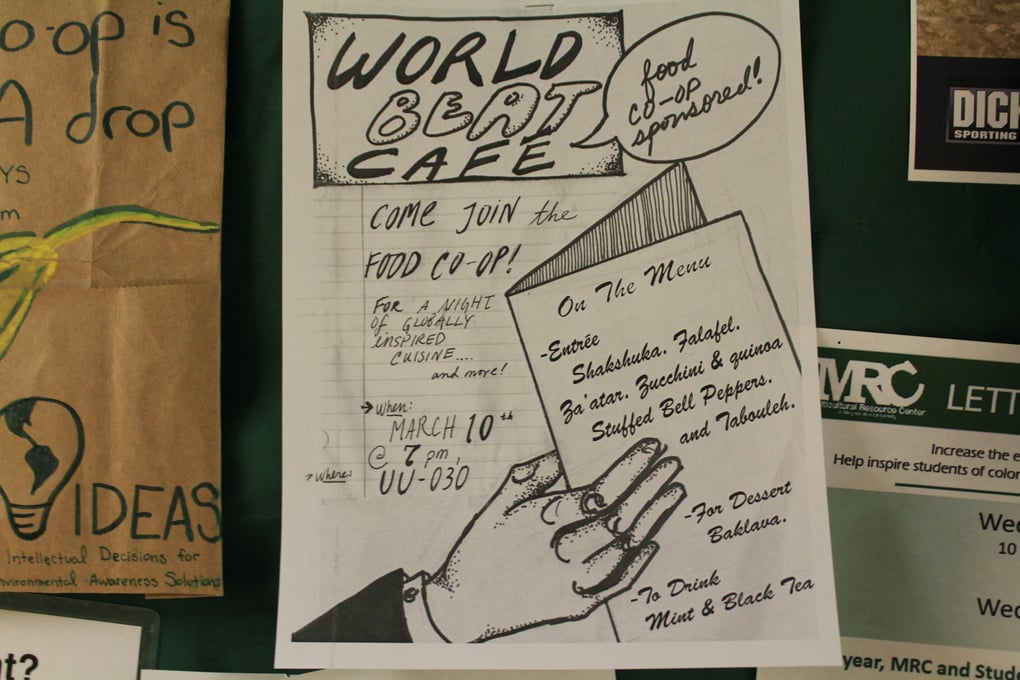 o-op is
A drop
YS
m
IDEAS
Intellectual Decisions for
nvironmental Awareness Solutions
t?
WORLD
BEAT
CAFE
food
CO-OP
sponsored!
COME JOIN the
FOOD CO-OP!
FOR A NIGHT
OF GLOBALLY
INSPIRED
CUISINE....
and more!
→ When:
MARCH 10th
@ 7 pm,
→ Where:
UU-030
On The Menu
-Entrée
Shakshuka. Falafel.
Za'atar. Zucchini & quinoa
Stuffed Bell Peppers.
and Tabouleh.
-For Dessert
Baklava.
-To Drink
Mint & Black Tea
DICK
SPORTING
MRC
ticultural Resource Center
LETT
Increase the e
Help inspire students of color
Wed
10
Wed
year, MRC and Stude